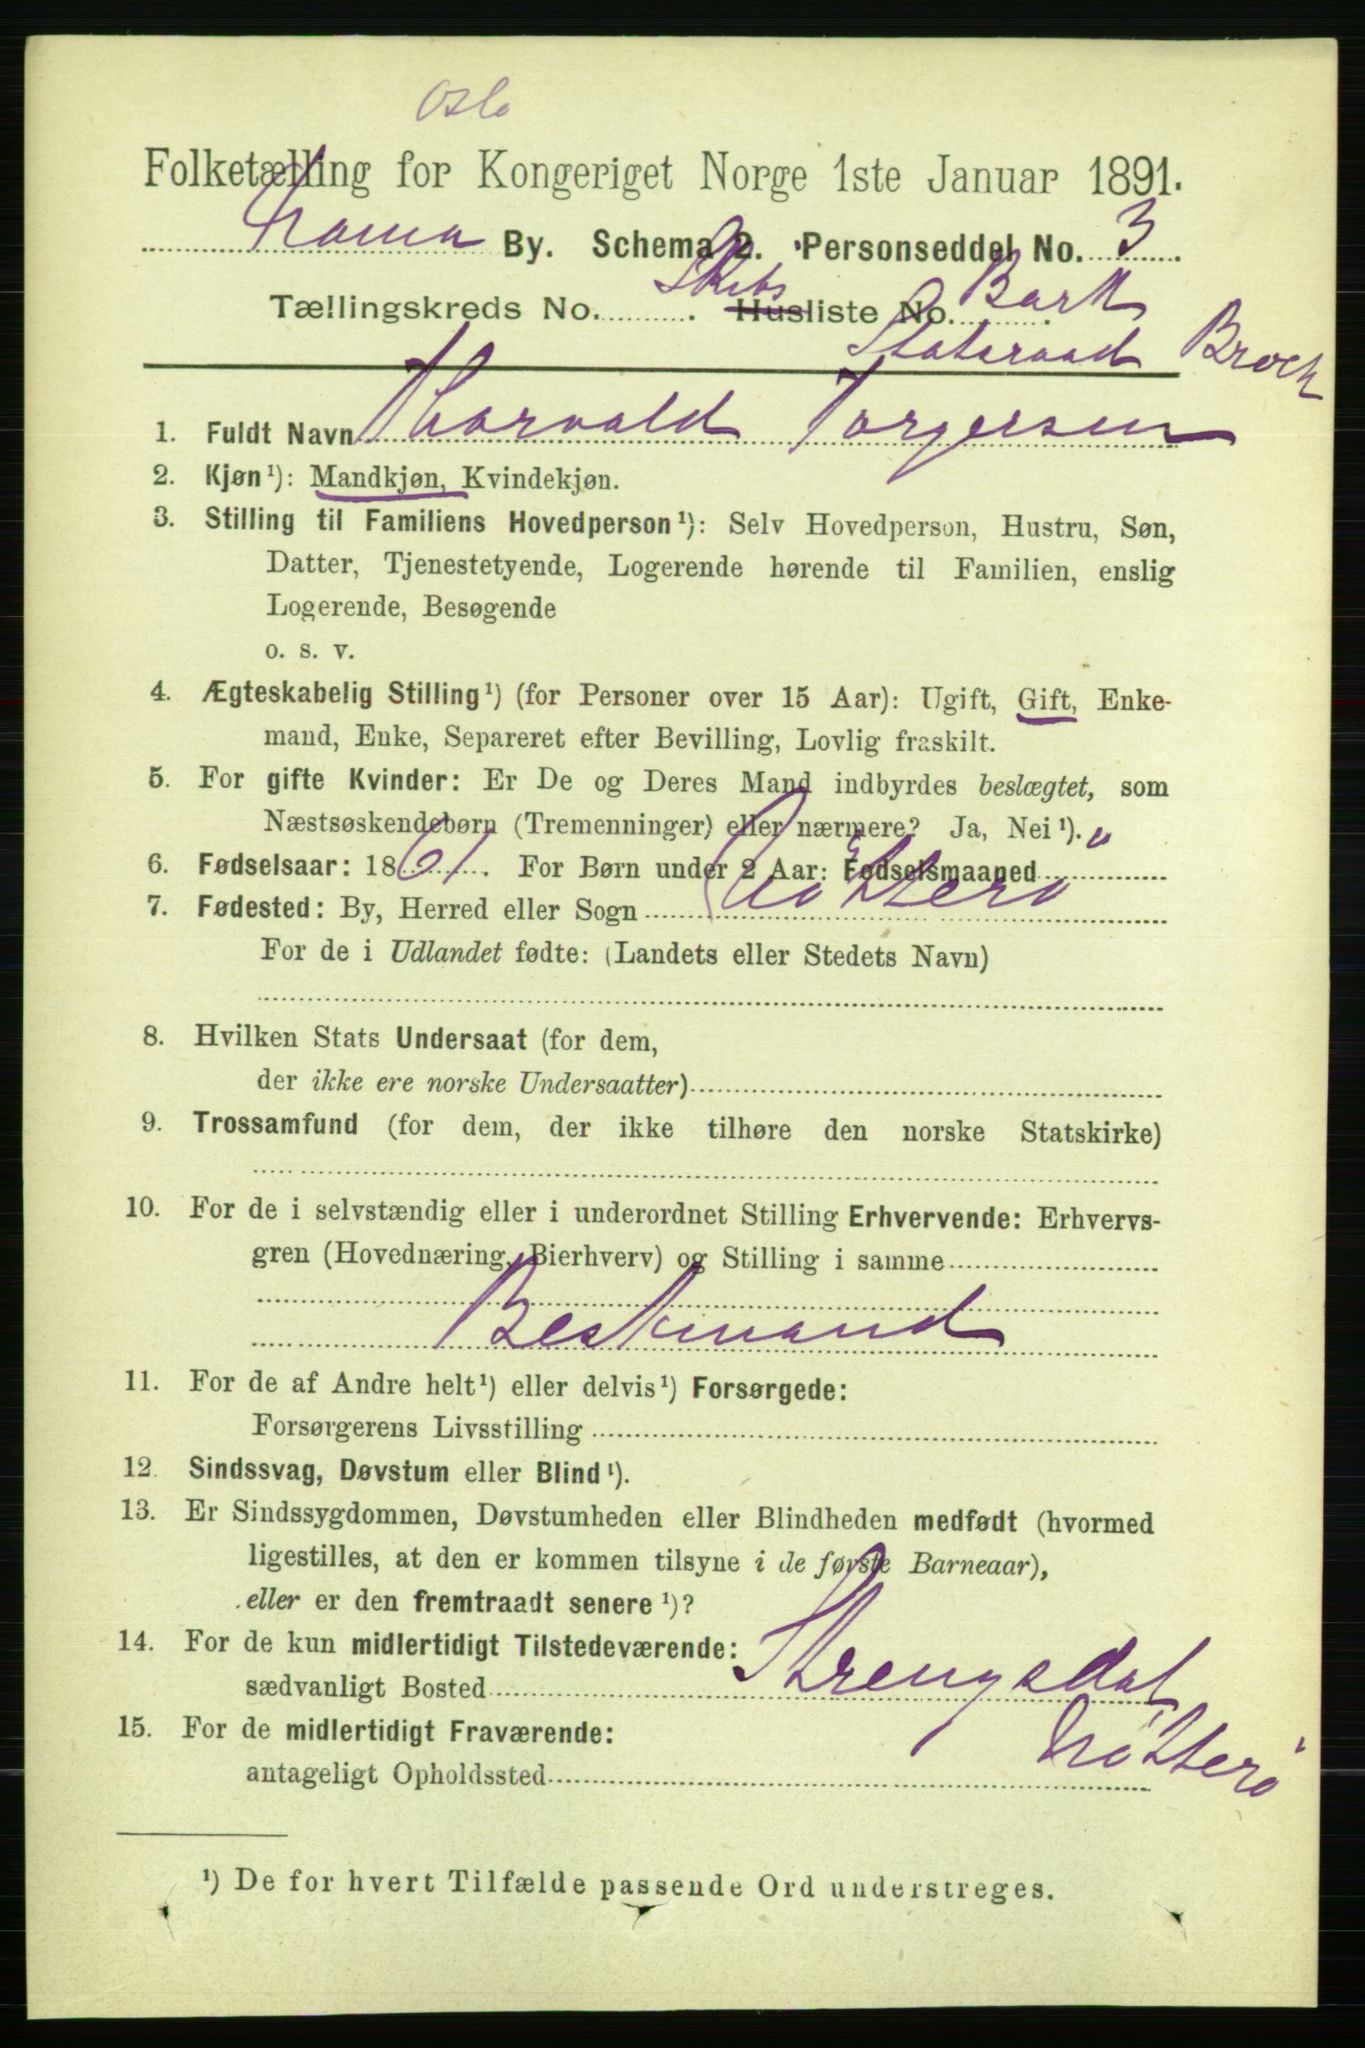 Oslo
Folketælling for Kongeriget Norge 1ste Januar 1891.
By. Schema 2. Personseddel No. 3
Tællingskreds No. Skibs Husliste No. Bark
Statsraad Broch
1. Fuldt Navn Thorvald Torgersen
2. Kjøn¹): Mandkjøn, Kvindekjøn.
3. Stilling til Familiens Hovedperson¹): Selv Hovedperson, Hustru, Søn,
Datter, Tjenestetyende, Logerende hørende til Familien, enslig
Logerende, Besøgende
o. s. v.
4. Ægteskabelig Stilling¹) (for Personer over 15 Aar): Ugift, Gift, Enke-
mand, Enke, Separeret efter Bevilling, Lovlig fraskilt.
5. For gifte Kvinder: Er De og Deres Mand indbyrdes beslægtet, som
Næstsøskendebørn (Tremenninger) eller nærmere? Ja, Nei¹).
6. Fødselsaar: 1861. For Børn under 2 Aar: Fødselsmaaned
7. Fødested: By, Herred eller Sogn Nötterö
For de i Udlandet fødte: (Landets eller Stedets Navn)
8. Hvilken Stats Undersaat (for dem,
der ikke ere norske Undersaatter)
9. Trossamfund (for dem, der ikke tilhøre den norske Statskirke)
10. For de i selvstændig eller i underordnet Stilling Erhvervende: Erhvervs-
gren (Hovednæring, Bierhverv) og Stilling i samme
Bestmand
11. For de af Andre helt¹) eller delvis¹) Forsørgede:
Forsørgerens Livsstilling
12. Sindssvag, Døvstum eller Blind¹).
13. Er Sindssygdommen, Døvstumheden eller Blindheden medfødt (hvormed
ligestilles, at den er kommen tilsyne i de første Barneaar),
eller er den fremtraadt senere¹)?
14. For de kun midlertidigt Tilstedeværende:
sædvanligt Bosted Strengsdal
15. For de midlertidigt Fraværende: Nötterö
antageligt Opholdssted
¹) De for hvert Tilfælde passende Ord understreges.